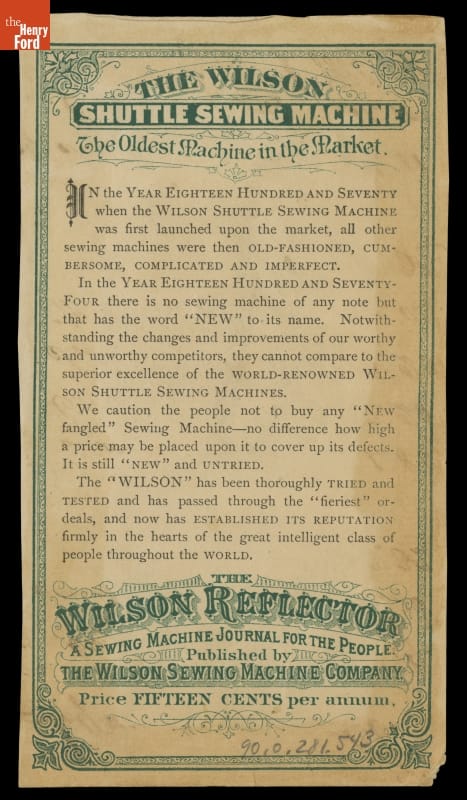 the
Henry
Ford
THE WILSON
SHUTTLE SEWING MACHINE
The Oldest Machine in the Market.
IN the YEAR EIGHTEEN HUNDRED AND SEVENTY
when the WILSON SHUTTLE SEWING MACHINE
was first launched upon the market, all other
sewing machines were then OLD-FASHIONED, CUM-
BERSOME, COMPLICATED AND IMPERFECT.
In the YEAR EIGHTEEN HUNDRED AND SEVENTY-
FOUR there is no sewing machine of any note but
that has the word "NEW" to its name. Notwith-
standing the changes and improvements of our worthy
and unworthy competitors, they cannot compare to the
superior excellence of the WORLD-RENOWNED WIL-
SON SHUTTLE SEWING MACHINES.
We caution the people not to buy any "NEW
fangled" Sewing Machine—no difference how high
a price may be placed upon it to cover up its defects.
It is still "NEW" and UNTRIED.
The "WILSON" has been thoroughly TRIED and
TESTED and has passed through the "fieriest" or-
deals, and now has ESTABLISHED ITS REPUTATION
firmly in the hearts of the great intelligent class of
people throughout the WORLD.
THE
WILSON REFLECTOR
A SEWING MACHINE JOURNAL FOR THE PEOPLE.
Published by
THE WILSON SEWING MACHINE COMPANY.
Price FIFTEEN CENTS per annum.
90.0.281.543